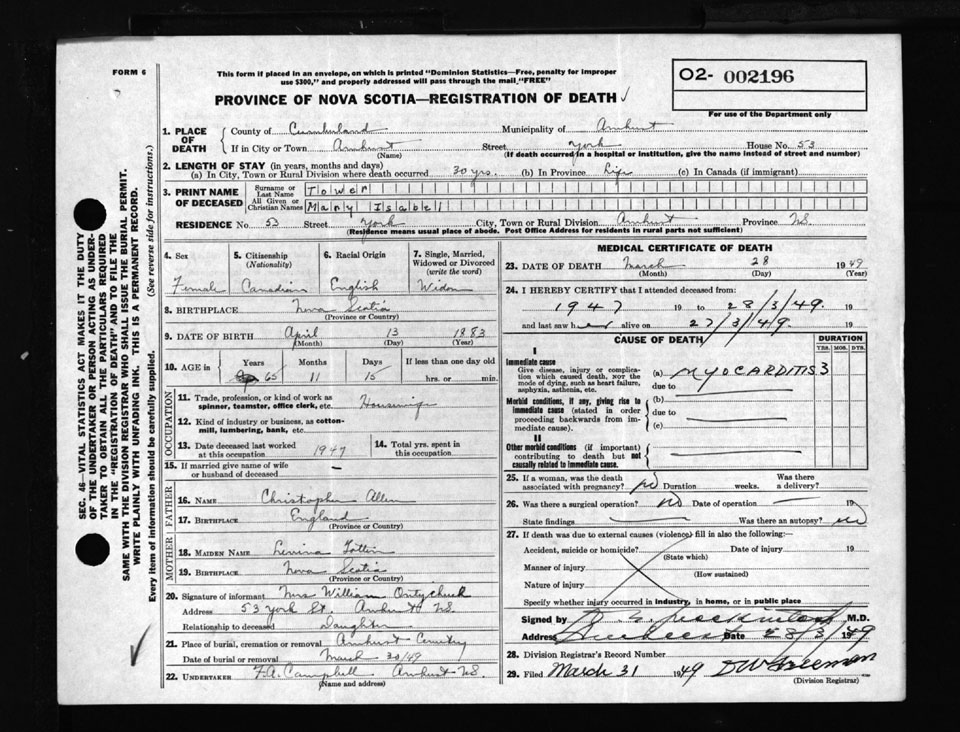 FORM 6
This form if placed in an envelope, on which is printed "Dominion Statistics—Free, penalty for improper
use $300," and properly addressed will pass through the mail "FREE"
O2- 002196
For use of the Department only
PROVINCE OF NOVA SCOTIA—REGISTRATION OF DEATH
1. PLACE OF DEATH County of Cumberland Municipality of Amherst
If in City or Town Amherst Street York House No. 53
(Name) (If death occurred in a hospital or institution, give the name instead of street and number)
2. LENGTH OF STAY (in years, months and days)
(a) In City, Town or Rural Division where death occurred 30 yrs. (b) In Province Life (c) In Canada (if immigrant)
3. PRINT NAME OF DECEASED Surname or Last Name Tower
All Given or Christian Names Mary Isabel
RESIDENCE No 53 Street York City, Town or Rural Division Amherst Province N.S.
(Residence means usual place of abode. Post Office Address for residents in rural parts not sufficient)
4. Sex 5. Citizenship (Nationality) 6. Racial Origin 7. Single, Married, Widowed or Divorced (write the word)
Female Canadian English Widow
8. BIRTHPLACE Nova Scotia
(Province or Country)
9. DATE OF BIRTH April 13 1883
(Month) (Day) (Year)
10. AGE in Years Months Days If less than one day old
65 11 15 hrs. or min.
OCCUPATION
11. Trade, profession, or kind of work as spinner, teamster, office clerk, etc. Housewife
12. Kind of industry or business, as cotton-mill, lumbering, bank, etc.
13. Date deceased last worked at this occupation 1947 14. Total yrs. spent in this occupation
15. If married give name of wife or husband of deceased —
FATHER
16. NAME Christopher Allen
17. BIRTHPLACE England
(Province or Country)
MOTHER
18. MAIDEN NAME
19. BIRTHPLACE Nova Scotia
(Province or Country)
20. Signature of informant Mrs William
Address 53 York St. Amherst N.S.
Relationship to deceased Daughter
21. Place of burial, cremation or removal Amherst - Cemetery
Date of burial or removal March 30/49
22. UNDERTAKER F.A. Campbell Amherst N.S.
(Name and address)
MEDICAL CERTIFICATE OF DEATH
23. DATE OF DEATH March 28 1949
(Month) (Day) (Year)
24. I HEREBY CERTIFY that I attended deceased from:
1947 19 to 28/3/49. 19
and last saw her alive on 27/3/49. 19
CAUSE OF DEATH DURATION
YRS. MOS. DYS.
I
Immediate cause
Give disease, injury or complication which caused death, not the mode of dying, such as heart failure, asphyxia, asthenia, etc.
(a) MYOCARDITIS 3
due to
Morbid conditions, if any, giving rise to immediate cause (stated in order proceeding backwards from immediate cause).
(b)
due to
(c)
II
Other morbid conditions (if important) contributing to death but not causally related to immediate cause.
25. If a woman, was the death associated with pregnancy? No Duration weeks. Was there a delivery?
26. Was there a surgical operation? No Date of operation 19
State findings Was there an autopsy? No
27. If death was due to external causes (violence) fill in also the following:—
Accident, suicide or homicide? Date of injury 19
(State which)
Manner of injury
(How sustained)
Nature of injury
Specify whether injury occurred in industry, in home, or in public place
Signed by M.D.
Address Date 28/3/1949
28. Division Registrar's Record Number
29. Filed March 31 1949 Freeman
(Division Registrar)
SEC. 46—VITAL STATISTICS ACT MAKES IT THE DUTY
OF THE UNDERTAKER OR PERSON ACTING AS UNDER-
TAKER TO OBTAIN ALL THE PARTICULARS REQUIRED
IN THE "REGISTRATION OF DEATH" AND TO FILE THE
SAME WITH THE DIVISION REGISTRAR WHO SHALL ISSUE THE BURIAL PERMIT.
WRITE PLAINLY WITH UNFADING INK. THIS IS A PERMANENT RECORD.
Every item of information should be carefully supplied. (See reverse side for instructions.)